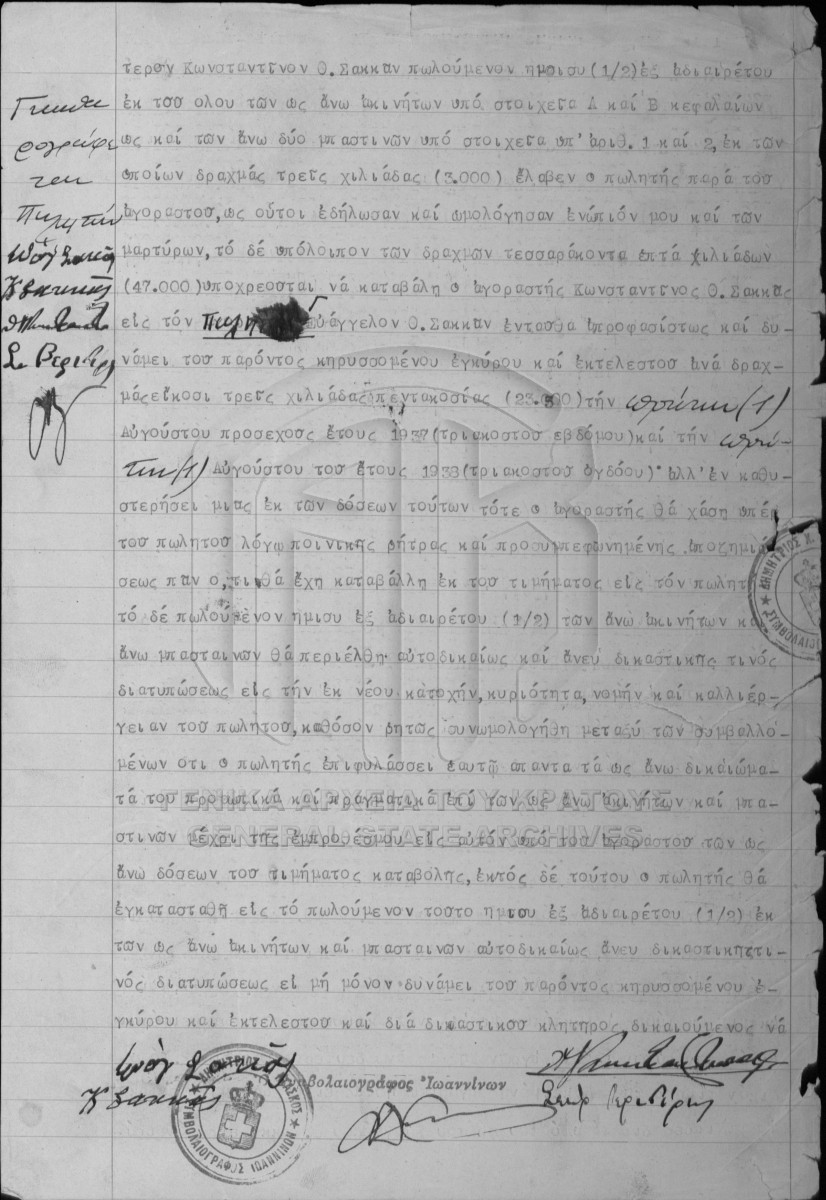 τερον Κωνσταντῖνον Θ. Σακκᾶν πωλούμενον ημισυ (1/2) ἐξ ἀδιαιρέτου
ἐκ τοῦ ολου τῶν ως ἄνω ἀκινήτων ὑπό στοιχεῖα Α καί Β κεφαλαίων
ως καί τῶν ἄνω δύο μπαστινῶν ὑπό στοιχεῖα ὑπ' ἀριθ. 1 καί 2, ἐκ τῶν
οποίων δραχμάς τρεῖς χιλιάδας (3.000) ἔλαβεν ο πωλητής παρά τοῦ
ἀγοραστοῦ, ως οὗτοι ἐδήλωσαν καί ωμολόγησαν ἐνώπιόν μου καί τῶν
μαρτύρων, τό δέ ὑπόλοιπον τῶν δραχμῶν τεσσαράκοντα ἑπτά χιλιάδων
(47.000) ὑποχρεοῦται νά καταβάλη ο ἀγοραστής Κωνσταντῖνος Θ. Σακκᾶς
εἰς τόν άγγελον Θ. Σακκᾶν ἐνταῦθα ἀπροφασίστως καί δυ-
νάμει τοῦ παρόντος κηρυσσομένου ἐγκύρου καί ἐκτελεστοῦ ἀνά δραχ-
μάς εἴκοσι τρεῖς χιλιάδας πεντακοσίας τήν πρώτην (1)
Αὐγούστου προσεχοῦς ἔτους 1937 (τριακοστοῦ εβδόμου) καί τήν πρώ-
την (1) Αὐγούστου τοῦ ἔτους 1938 (τριακοστοῦ ὀγδόου)· ἀλλ' ἐν καθυ-
στερήσει μιᾶς ἐκ τῶν δόσεων τούτων τότε ο ἀγοραστής θά χάση ὑπέρ
τοῦ πωλητοῦ λόγῳ ποινικῆς ρήτρας καί προσυμπεφωνημένης ἀποζημιώ
σεως πᾶν ο, τι θά ἔχη καταβάλλη ἐκ τοῦ τιμήματος εἰς τόν πωλητ
τό δέ πωλούμενον ημισυ ἐξ ἀδιαιρέτου (1/2) τῶν ἄνω ἀκινήτων κα
ἄνω μπασταινῶν θά περιέλθη αὐτοδικαίως καί ἄνευ δικαστικῆς τινός
διατυπώσεως εἰς τήν ἐκ νέου κατοχήν, κυριότητα, νομήν καί καλλιέρ-
γειαν τοῦ πωλητοῦ, καθόσον ρητῶς συνωμολογήθη μεταξύ τῶν συμβαλλο-
μένων οτι ο πωλητής ἐπιφυλάσσει ἑαυτῷ απαντα τά ως ἄνω δικαιώμα-
τά του προσωπικά καί πραγματικά ἐπί τῶν ως ἄνω ἀκινήτων καί μπα-
στινῶν μέχρι τῆς ἐμπροθέσμου εἰς αὐτόν ὑπό τοῦ ἀγοραστοῦ τῶν ως
ἄνω δόσεων τοῦ τιμήματος καταβολῆς, ἐκτός δέ τούτου ο πωλητής θά
ἐγκατασταθῆ εἰς τό πωλούμενον τοῦτο ημισυ ἐξ ἀδιαιρέτου (1/2) ἐκ
τῶν ως ἄνω ἀκινήτων καί μπασταινῶν αὐτοδικαίως ἄνευ δικαστικῆς τι-
νός διατυπώσεως εἰ μή μόνον δυνάμει τοῦ παρόντος κηρυσσομένου ἐ-
γκύρου καί ἐκτελεστοῦ καί διά δικαστικοῦ κλητῆρος, δικαιούμενος νά
Κ Σακκᾶς
Σ. Βεριβέρης
ΓΕΝΙΚΑ ΑΡΧΕΙΑ ΤΟΥ ΚΡΑΤΟΥΣ
GENERAL STATE ARCHIVES
Συμβολαιογράφος Ἰωαννίνων
ΣΥΜΒΟΛΑΙΟΓΡΑΦΟΣ ΙΩΑΝΝΙΝΩΝ